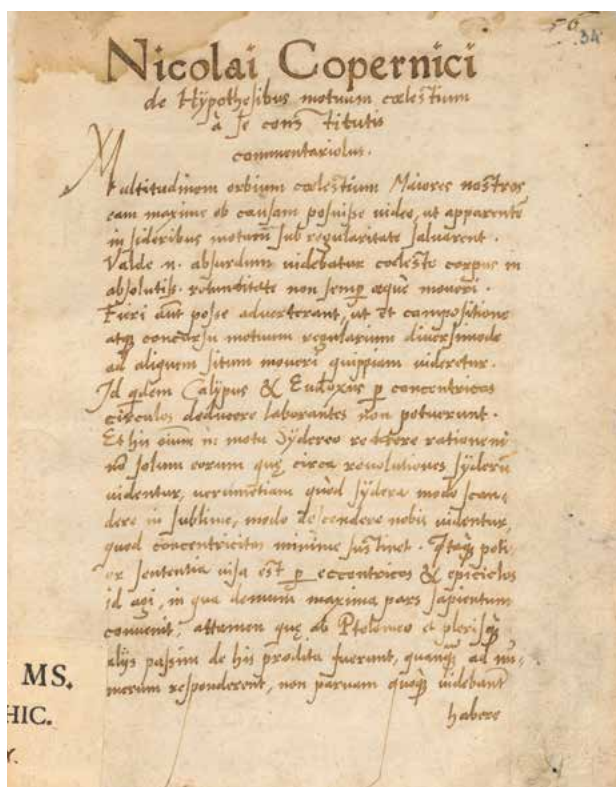 50
34
Nicolai Copernici
de Hÿpothesibus motuum cœlestium
à se constitutis
commentariolus.
Multitudinem orbium cœlestium Maiores nostros
eam maxime ob causam posuisse video, ut apparentē
in sideribus motum̄ sub regularitate salvarent.
Valde .n. absurdum videbatur cœleste corpus in
absolutiss. rotunditate non semp̱ æque moveri.
Fieri aūt posse adverterant, ut et compositione
atq̱ concursu motuum regularium diversimode
ad aliquem situm moveri quippiam videretur.
Id qdem Calipus & Eudoxus p̱ concentricos
circulos deducere laborantes non potuerunt.
Et his oīum in motu Sydereo reddere rationem
nō solum eorum quę circa revolutiones sÿderū
videntur, verumetiam quod sÿdera modo scan-
dere in sublime, modo descendere nobis videntur,
quod concentricitas minime sustinet. Itaq̱ poti-
or sententia visa est p̱ eccentricos & epiciclos
id agi, in qua demum maxima pars sapientum
convenit, attamen quę ab Ptolemeo et plerisq̱
alijs passim de his prodita fuerunt, quanq̱ ad nu-
merum responderent, non parvam quoq̱ videbant
habere
MS.
HIC.
Y.